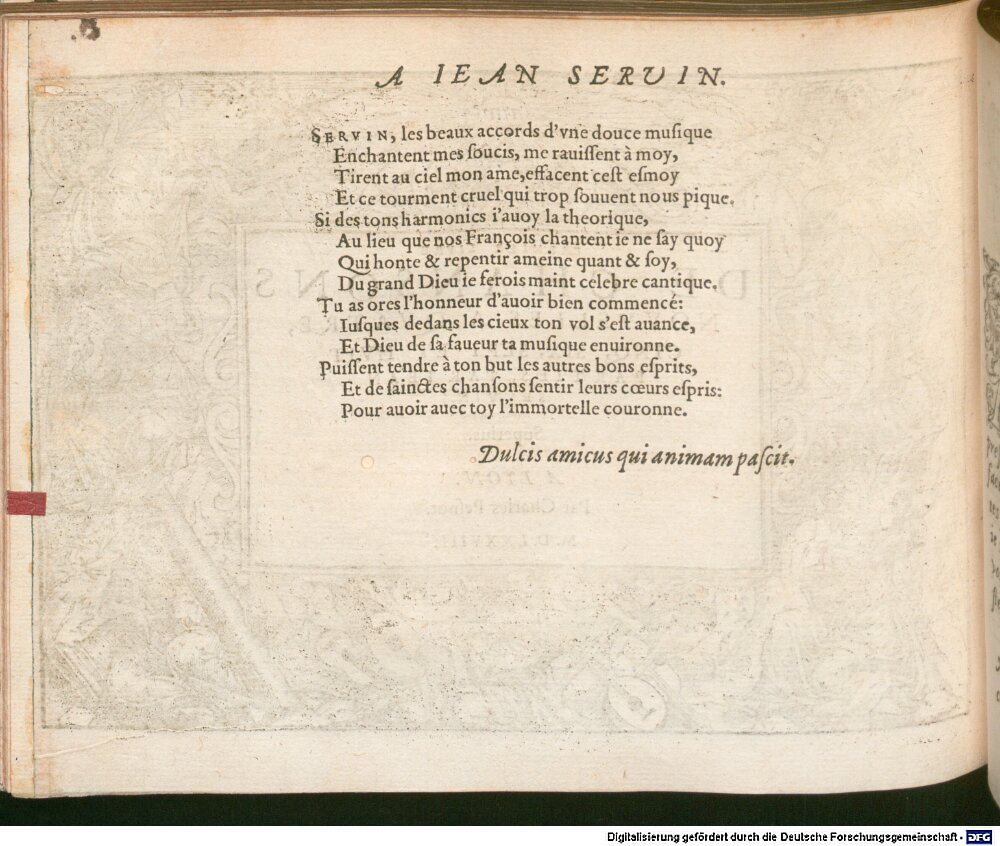 A IEAN SERVIN.
SERVIN, les beaux accords d'vne douce muſique
Enchantent mes ſoucis, me rauiſſent à moy,
Tirent au ciel mon ame, effacent ceſt eſmoy
Et ce tourment cruel qui trop ſouuent nous pique.
Si des tons harmonics i'auoy la theorique,
Au lieu que nos François chantent ie ne ſay quoy
Qui honte & repentir ameine quant & ſoy,
Du grand Dieu ie ferois maint celebre cantique.
Tu as ores l'honneur d'auoir bien commencé:
Iuſques dedans les cieux ton vol s'eſt auance,
Et Dieu de ſa faueur ta muſique enuironne.
Puiſſent tendre à ton but les autres bons eſprits,
Et de ſainctes chanſons ſentir leurs cœurs eſpris:
Pour auoir auec toy l'immortelle couronne.
Dulcis amicus qui animam paſcit.
Digitalisierung gefördert durch die Deutsche Forschungsgemeinschaft - DFG